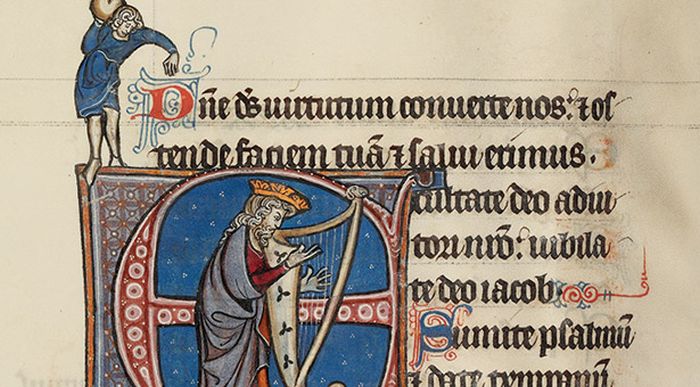 Dñe ds̃ uirtutum conuerte nos: ⁊ os
tende faciem tuã ⁊ salui erimus.
Exultate deo adiu
tori nrõ: iubila
te deo iacob.
Sumite psalmũ
⁊ date tympanũ